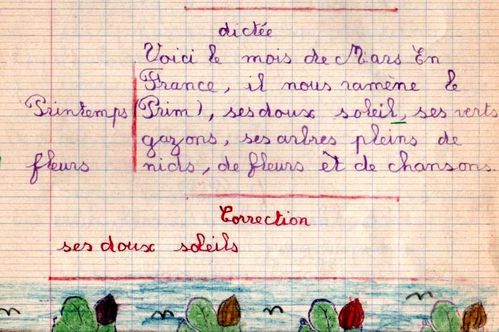 dictée
Voici le mois de Mars En
France, il nous ramène le
Printemps (Prim), ses doux soleil, ses verts
gazons, ses arbres pleins de
fleurs nids, de fleurs et de chansons.
Correction
ses doux soleils